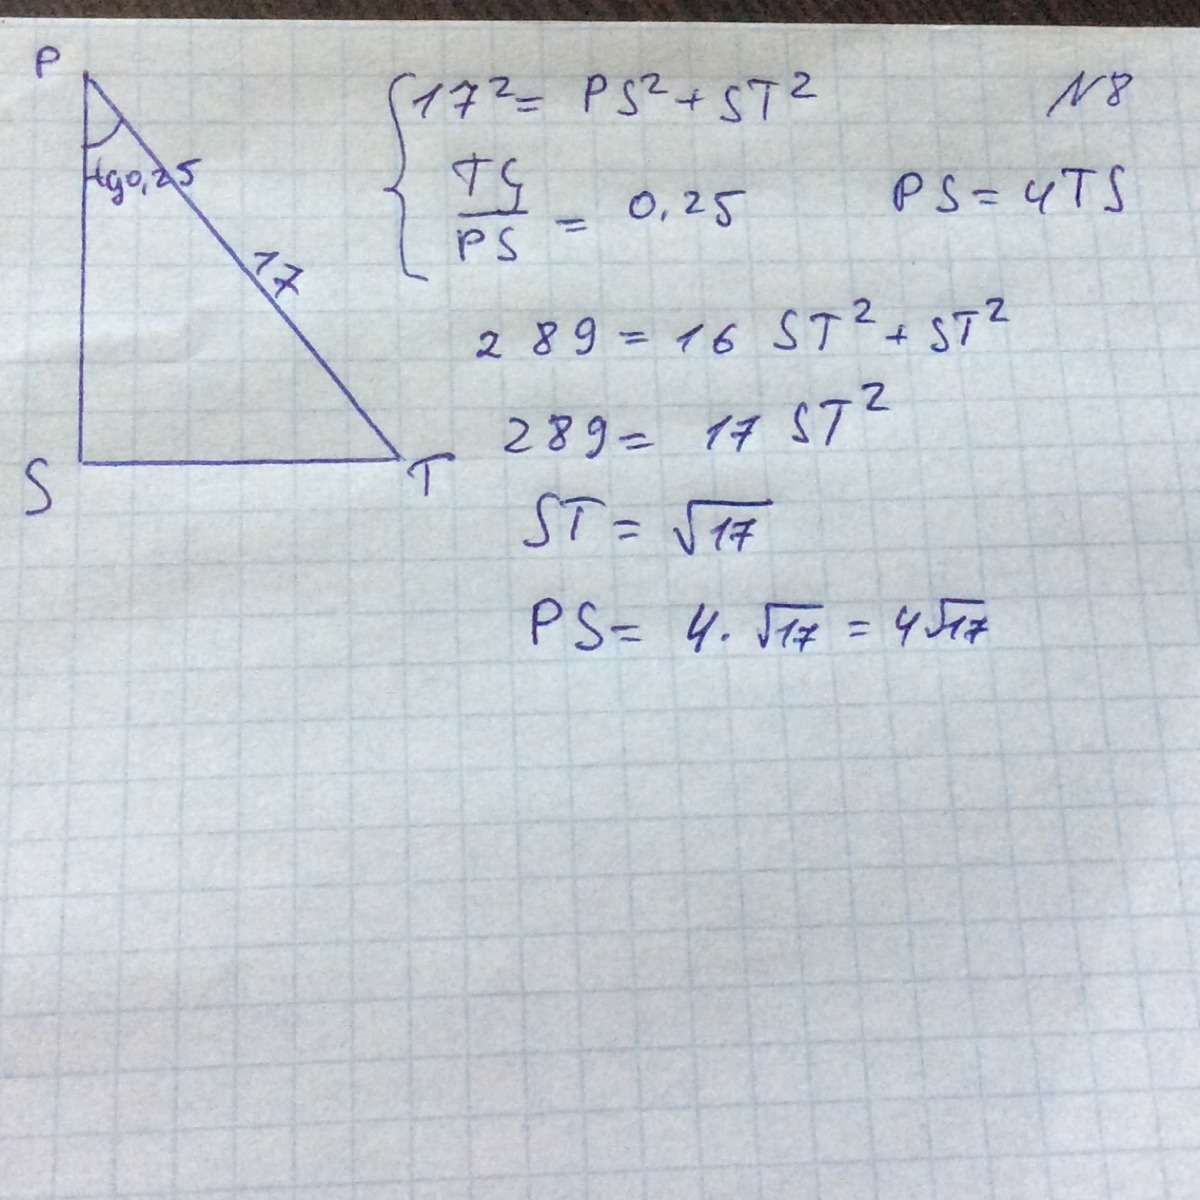 P
tg 0,25
17
S
T
N8
17² = PS² + ST²
TS/PS = 0,25
PS = 4TS
289 = 16 ST² + ST²
289 = 17 ST²
ST = √17
PS = 4 · √17 = 4√17